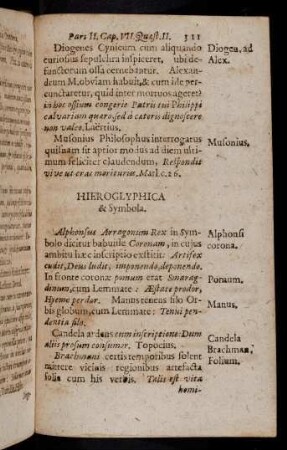 Pars II. Cap. VII. Quæst. II. 311
Diogenes Cynicum cum aliquando
curiosius sepulchra inspiceret, ubi de-
functorum ossa cernebantur. Alexan-
drum M. obviam habuit, & cum ide per-
cunctaretur, quid inter mortuos ageret?
in hoc ossium congerie Patris tui Philippi
calvarium quæro, sed à cæteris dignoscere
non valeo. Laërtius.
Musonius Philosophus interrogatus
quisnam sit aptior modus ad diem ultimum
feliciter claudendum, Respondit
vive ut eras moriturus. Max. c. 26.
HIEROGLYPHICA
& Symbola.
Alphonsus Arragonum Rex in Sym-
bolo dicitur habuisse Coronam, in cujus
ambitu hæc inscriptio exstitit: Artifex
cudit, Deus ludit, imponendo, deponendo.
In fronte coronæ pomum erat Smarag-
dinum, cum Lemmate: Æstate prodor,
Hyeme perdor. Manus tenens filo Or-
bis globum, cum Lemmate: Tenui pen-
dentia filo.
Candela ardens cum inscriptione: Dum
aliis prosum consumor. Topocius.
Brachmani certis temporibus solent
mittere viciniis regionibus artefacta
folia cum his verbis. Talis est vita
homi-
Diogen. ad
Alex.
Musonius,
Alphonsi
corona.
Pomum.
Manus.
Candela
Brachman.
Folium.